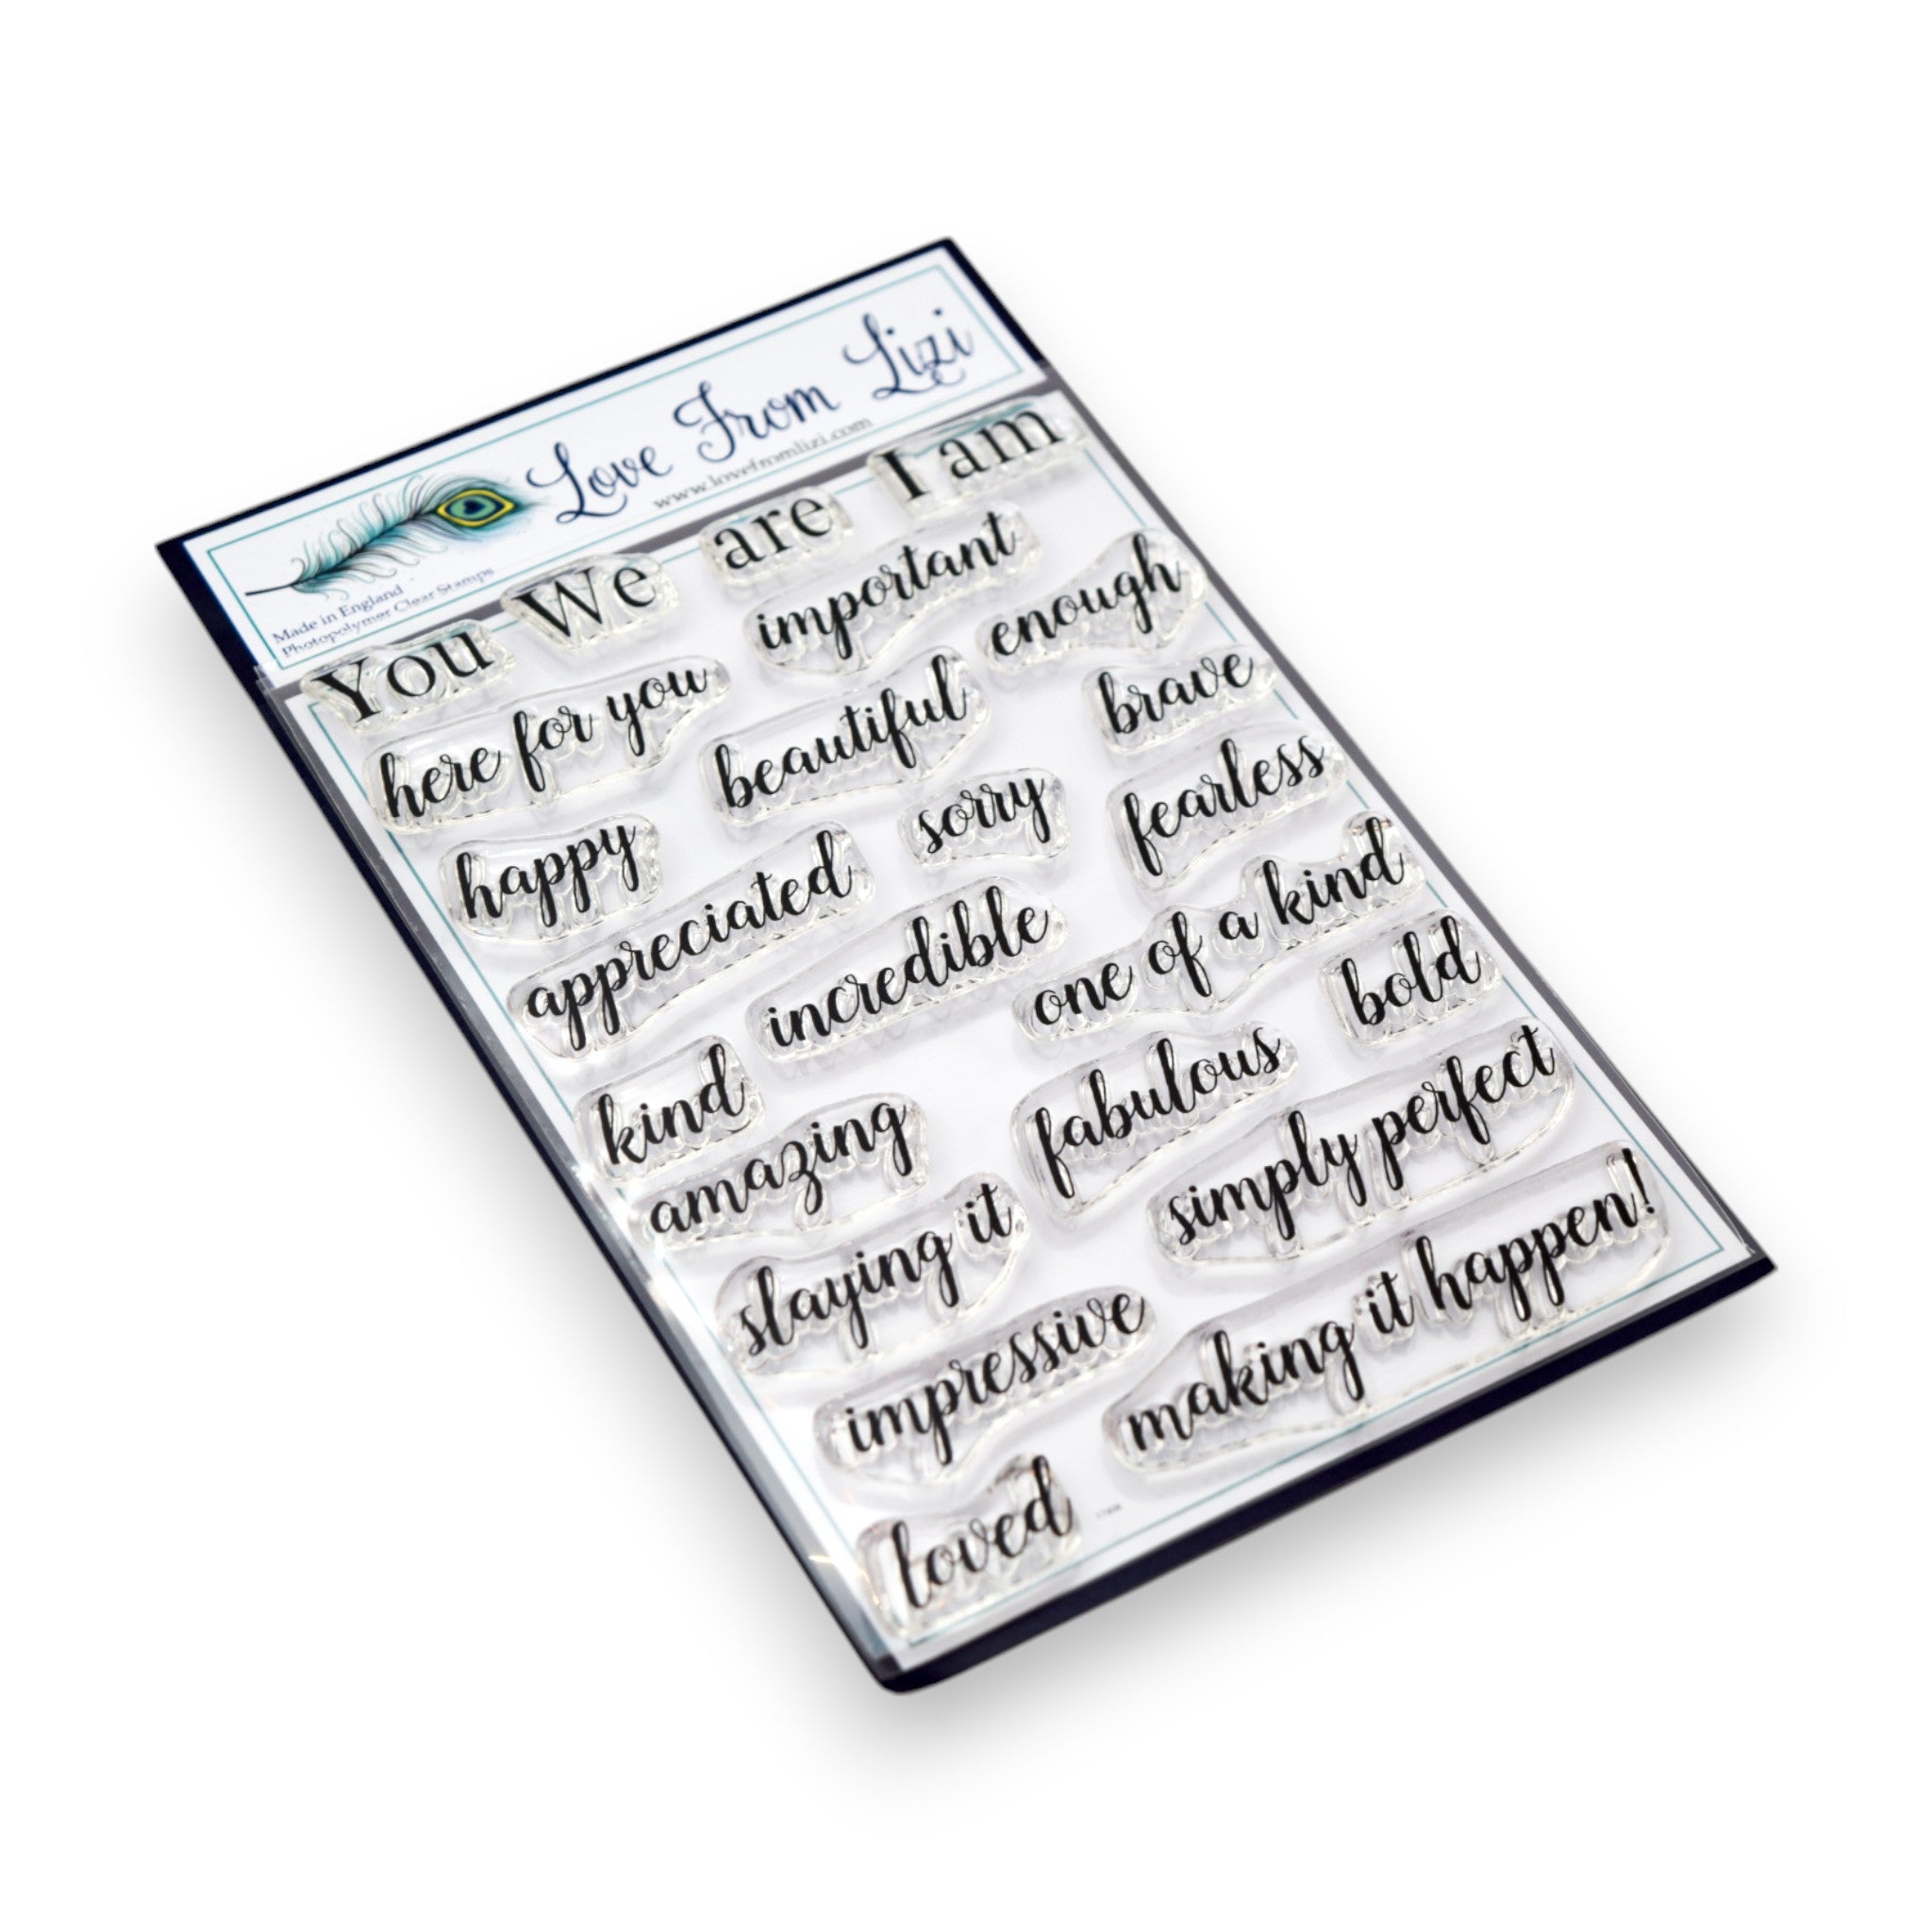 Love From Lizi
www.lovefromlizi.com
Made in England
Photopolymer Clear Stamps
You We are I am
here for you
important
enough
beautiful
brave
happy
sorry
fearless
appreciated
incredible
one of a kind
bold
kind
amazing
fabulous
simply perfect
slaying it
impressive
making it happen!
loved